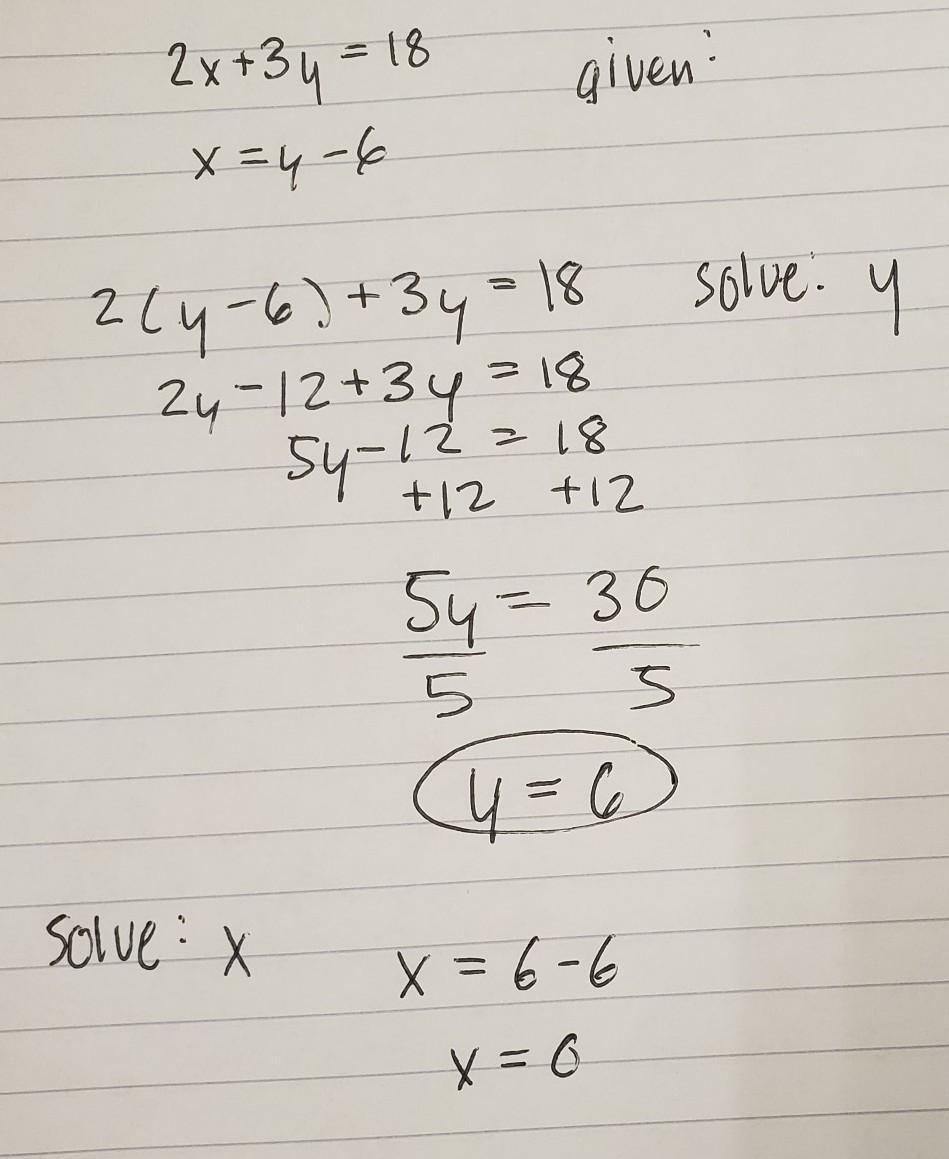 2x+3y=18 given:
x=y-6
2(y-6)+3y=18 solve: y
2y-12+3y=18
5y-12=18
+12 +12
5y=30
5 5
y=6
solve: x x=6-6
x=0